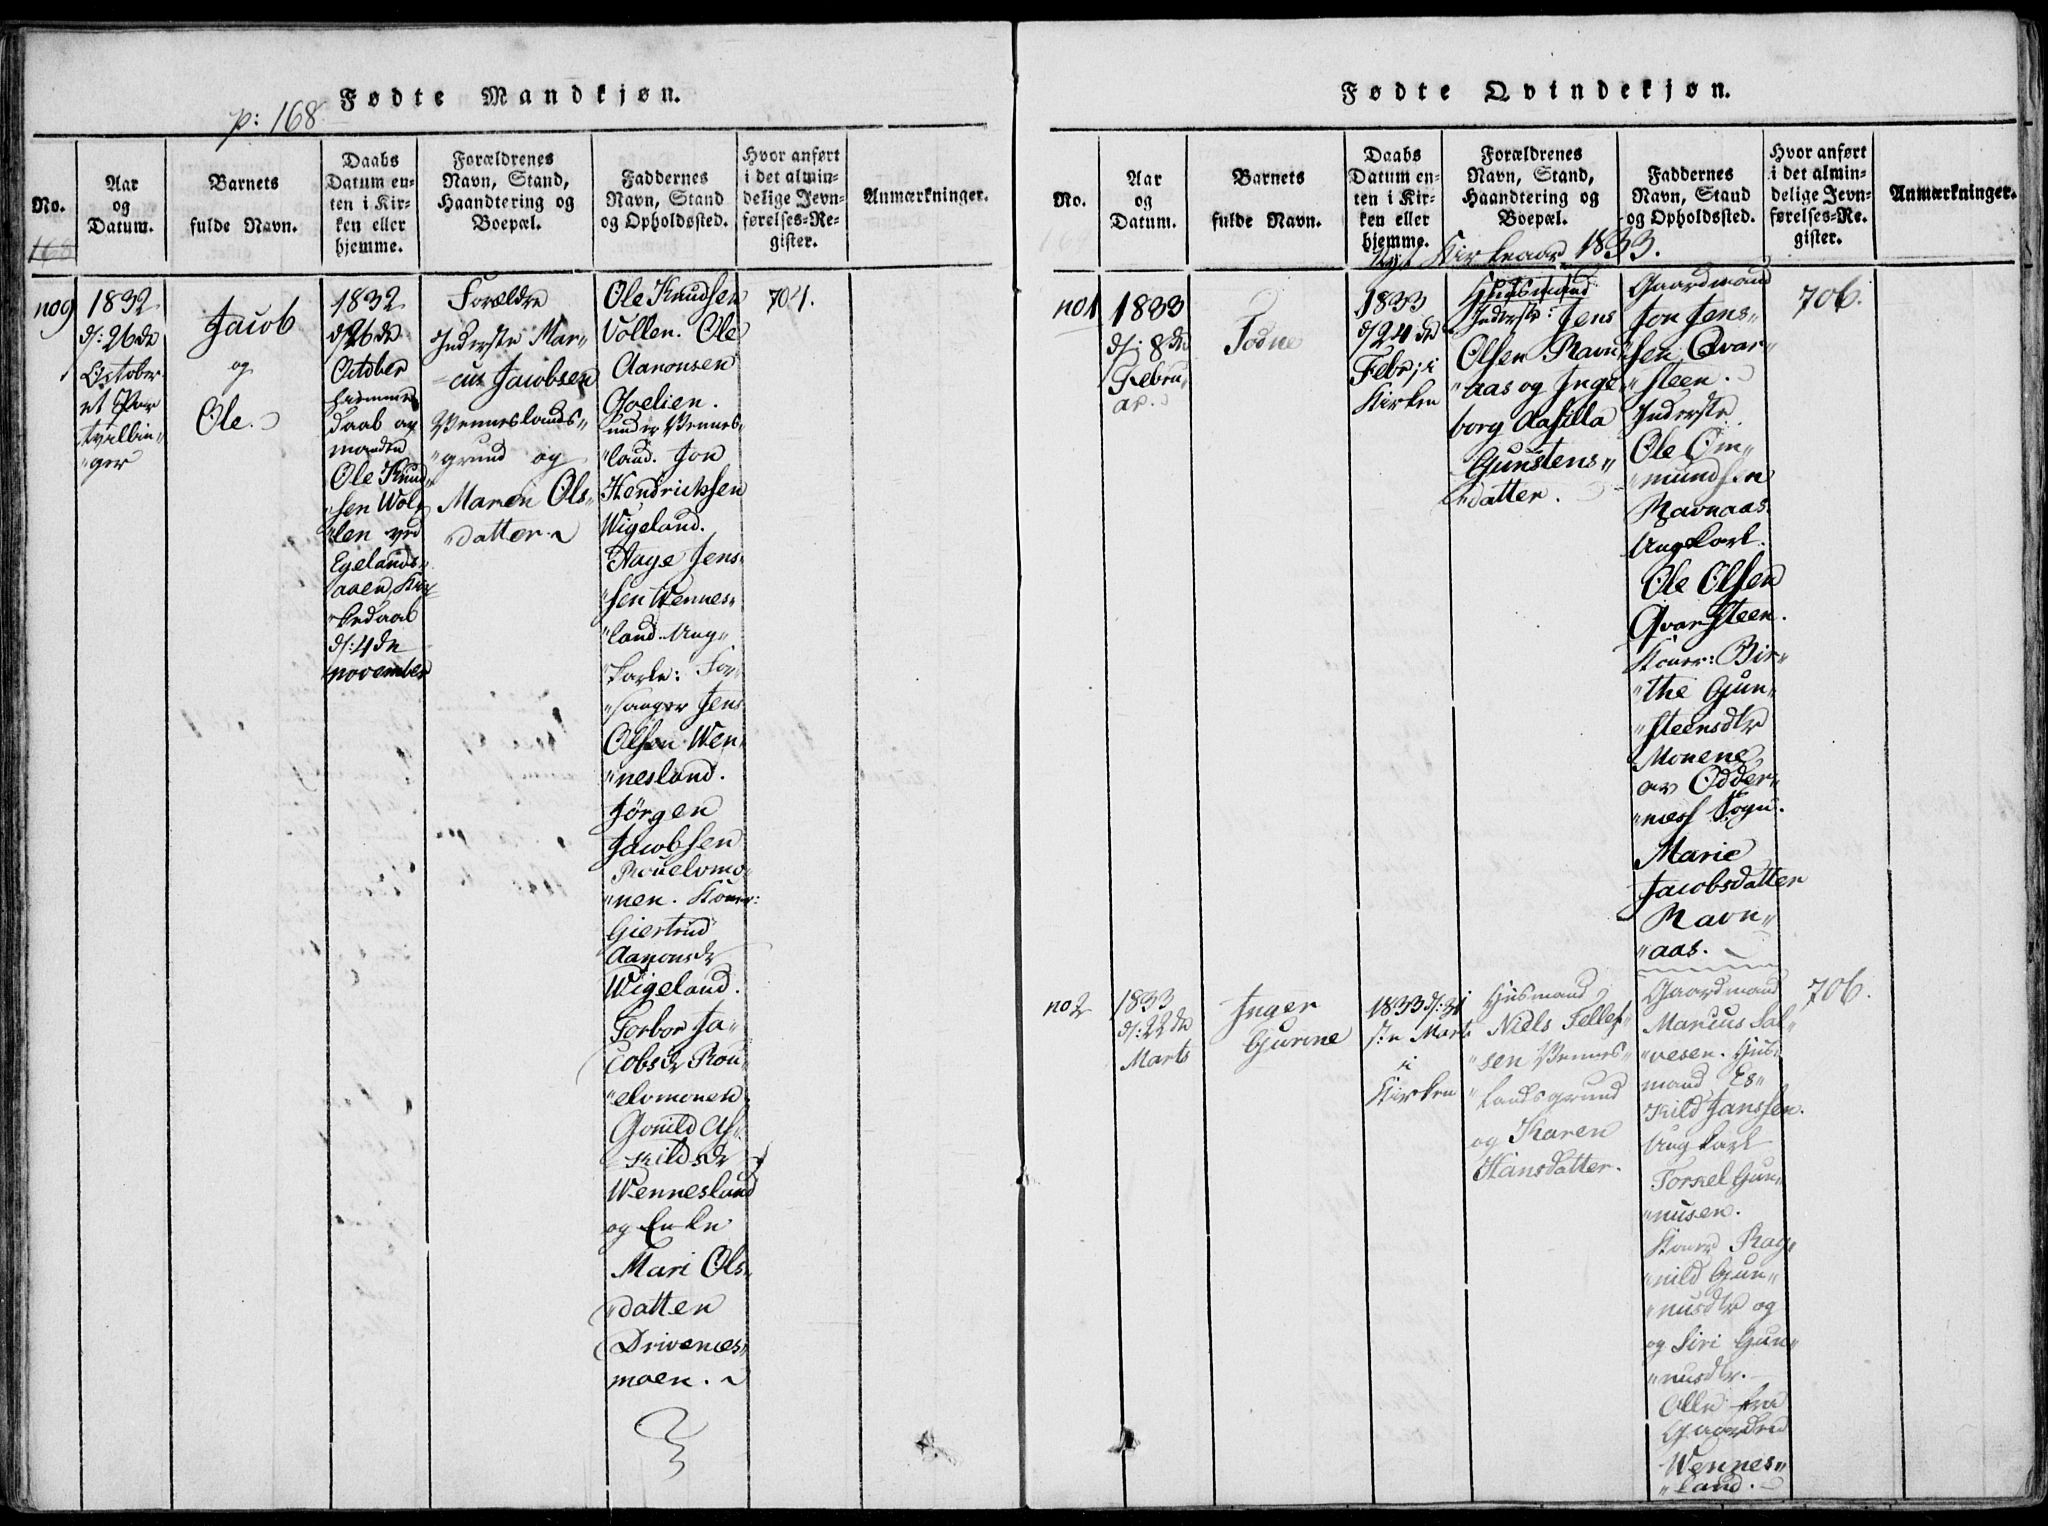 Fødte Mandkjøn.
p: 168.
No.
Aar
og
Datum.
Barnets
fulde Navn.
Daabs
Datum en-
ten i Kir-
ken eller
hjemme.
Forældrenes
Navn, Stand,
Haandtering og
Boepæl.
Faddernes
Navn, Stand
og Opholdssted.
Hvor anført
i det almin-
delige Jevn-
førelses-Re-
gister.
Anmærkninger.
168
no 9
1832
d: 26de
October
et Par
tvillin„
„ger
Jacob
og
Ole.
1832
d 26de
October
hjemme
daab av
manden
Ole Knud„
„sen Wol„
„len ved
Egelands„
aaen, Kir„
„kedaab
d: 4de
november
Forældre
Inderste Mar„
„cus Jacobsen
Venneslands„
„grund og
Maren Ols„
datter.
Ole Knudsen
Vollen. Ole
Aanonsen
under Vennes„
„land. Jon
Hendrichsen
Wigeland.
Aage Jens„
„sen Wennes„
„land. Ung„
„karle: For„
„sanger Jens
Olsen Wen„
„nesland.
Jørgen
Jacobsen
„nen. Koner:
Giertrud
Aanonsdr
Wigeland.
Torbor Ja„
cobsdr Rou„
„elvmonen
Gonild As„
„kildsdr
Wennesland
og Enke
Mari Ols„
„datter
Drivenes„
moen.
704.
Fødte Qvindekjøn.
No.
Aar
og
Datum.
Barnets
fulde Navn.
Daabs
Datum en-
ten i Kir-
ken eller
hjemme.
Forældrenes
Navn, Stand,
Haandtering og
Boepæl.
Faddernes
Navn, Stand
og Opholdssted.
Hvor anført
i det almin-
delige Jevn-
førelses-Re-
gister.
Anmærkninger.
Nyt Kirkeaar 1833.
no 1
1833
d: 8de
Febru„
ar.
Todne
1833
d 24de
Febr: i
Kirken
Huusmand
Inderst: Jens
Olsen Ravn„
„aas og Inge„
borg Aasilla
Gunstens„
„datter.
Gaardmand
Jon Jens„
„sen Qvar„
„steen.
Inderste
Ole Om„
„mundsen
Ravnaas.
Ungkarl.
Ole Olsen
Qvarsteen.
Koner: Bir„
„the Gun„
„steensdtr
Monene
av Odder„
„næss Sogn.
Marie
Jacobsdatter
Ravn„
„aas.
706.
no 2
1833
d: 22de
Marts
Inger
Gurine
1833 d: 31
ste Marts
i
Kirken
Husmand
Niels Tellef„
„sen Vennes„
„landsgrund
og Karen
Hansdatter.
Gaardmand
Marcus Sal„
„vesen. Hus„
mand Es„
„kild Janssen.
Ungkarl
Torkel Gun„
„nusen.
Koner Rag„
„nild Gun„
„nusdtr og
og Siri Gun„
„nusdtr.
Alle fra
Gaarden
Wennes„
„land.
706.